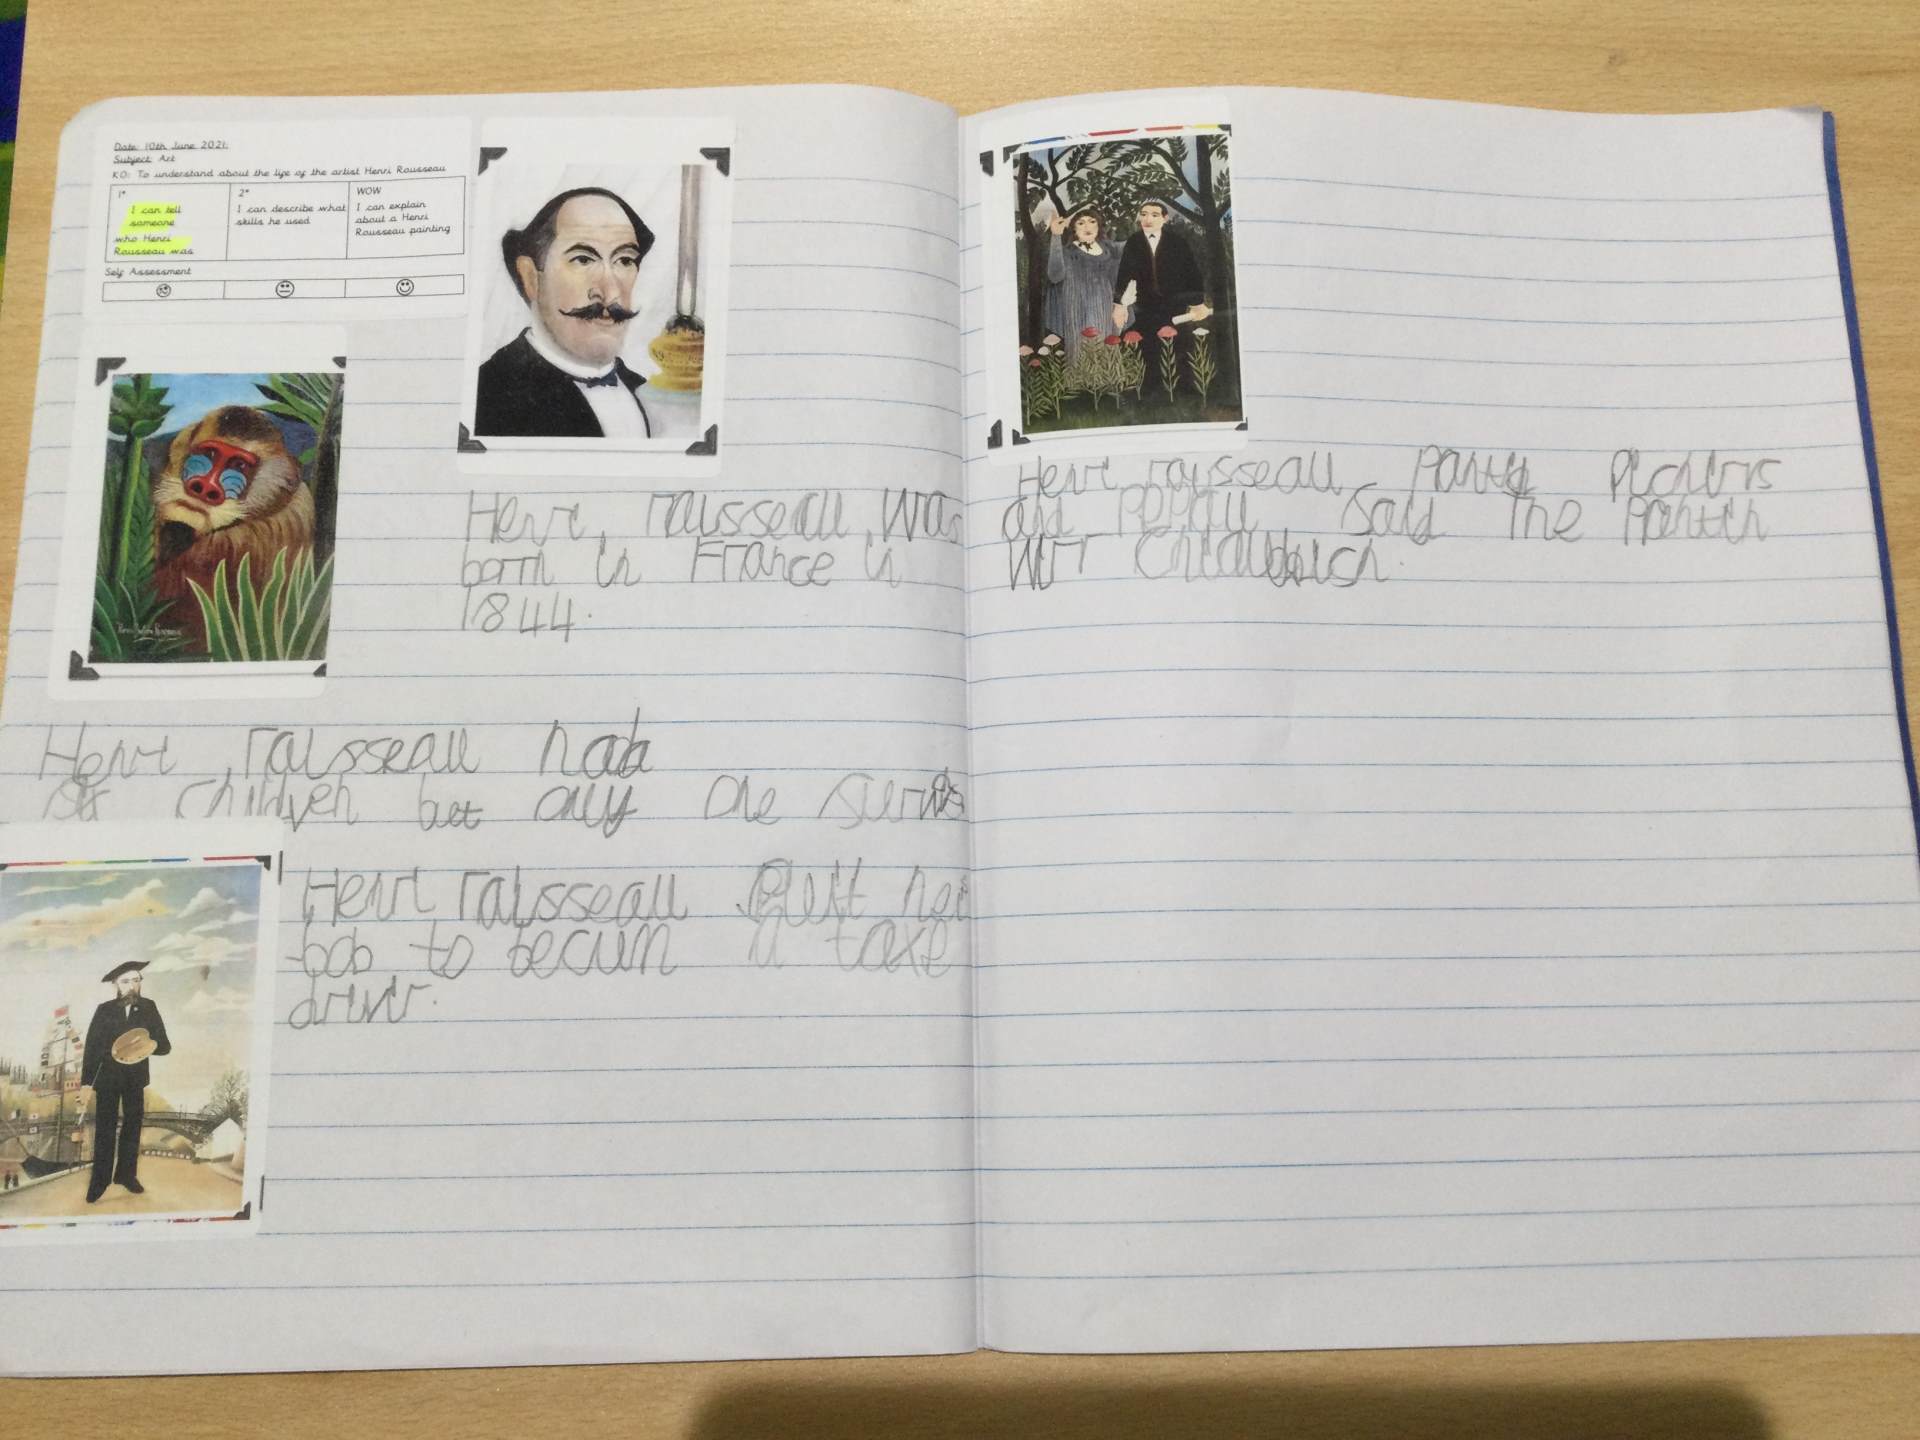 Date: 10th June 2021
Subject: Art
KO: To understand about the life of the artist Henri Rousseau
1*
I can tell
someone
who Henri
Rousseau was
2*
I can describe what
skills he used
WOW
I can explain
about a Henri
Rousseau painting
Self Assessment
Henri raisseau was
born in France in
1844.
Henri raisseau had
six children but only one
Henri raisseau left
to becum a taxe
driver.
Henri raisseau
and said The